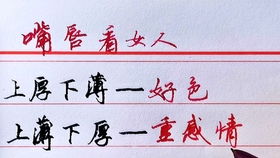 嘴唇看女人
上厚下薄—好色
上薄下厚—重感情